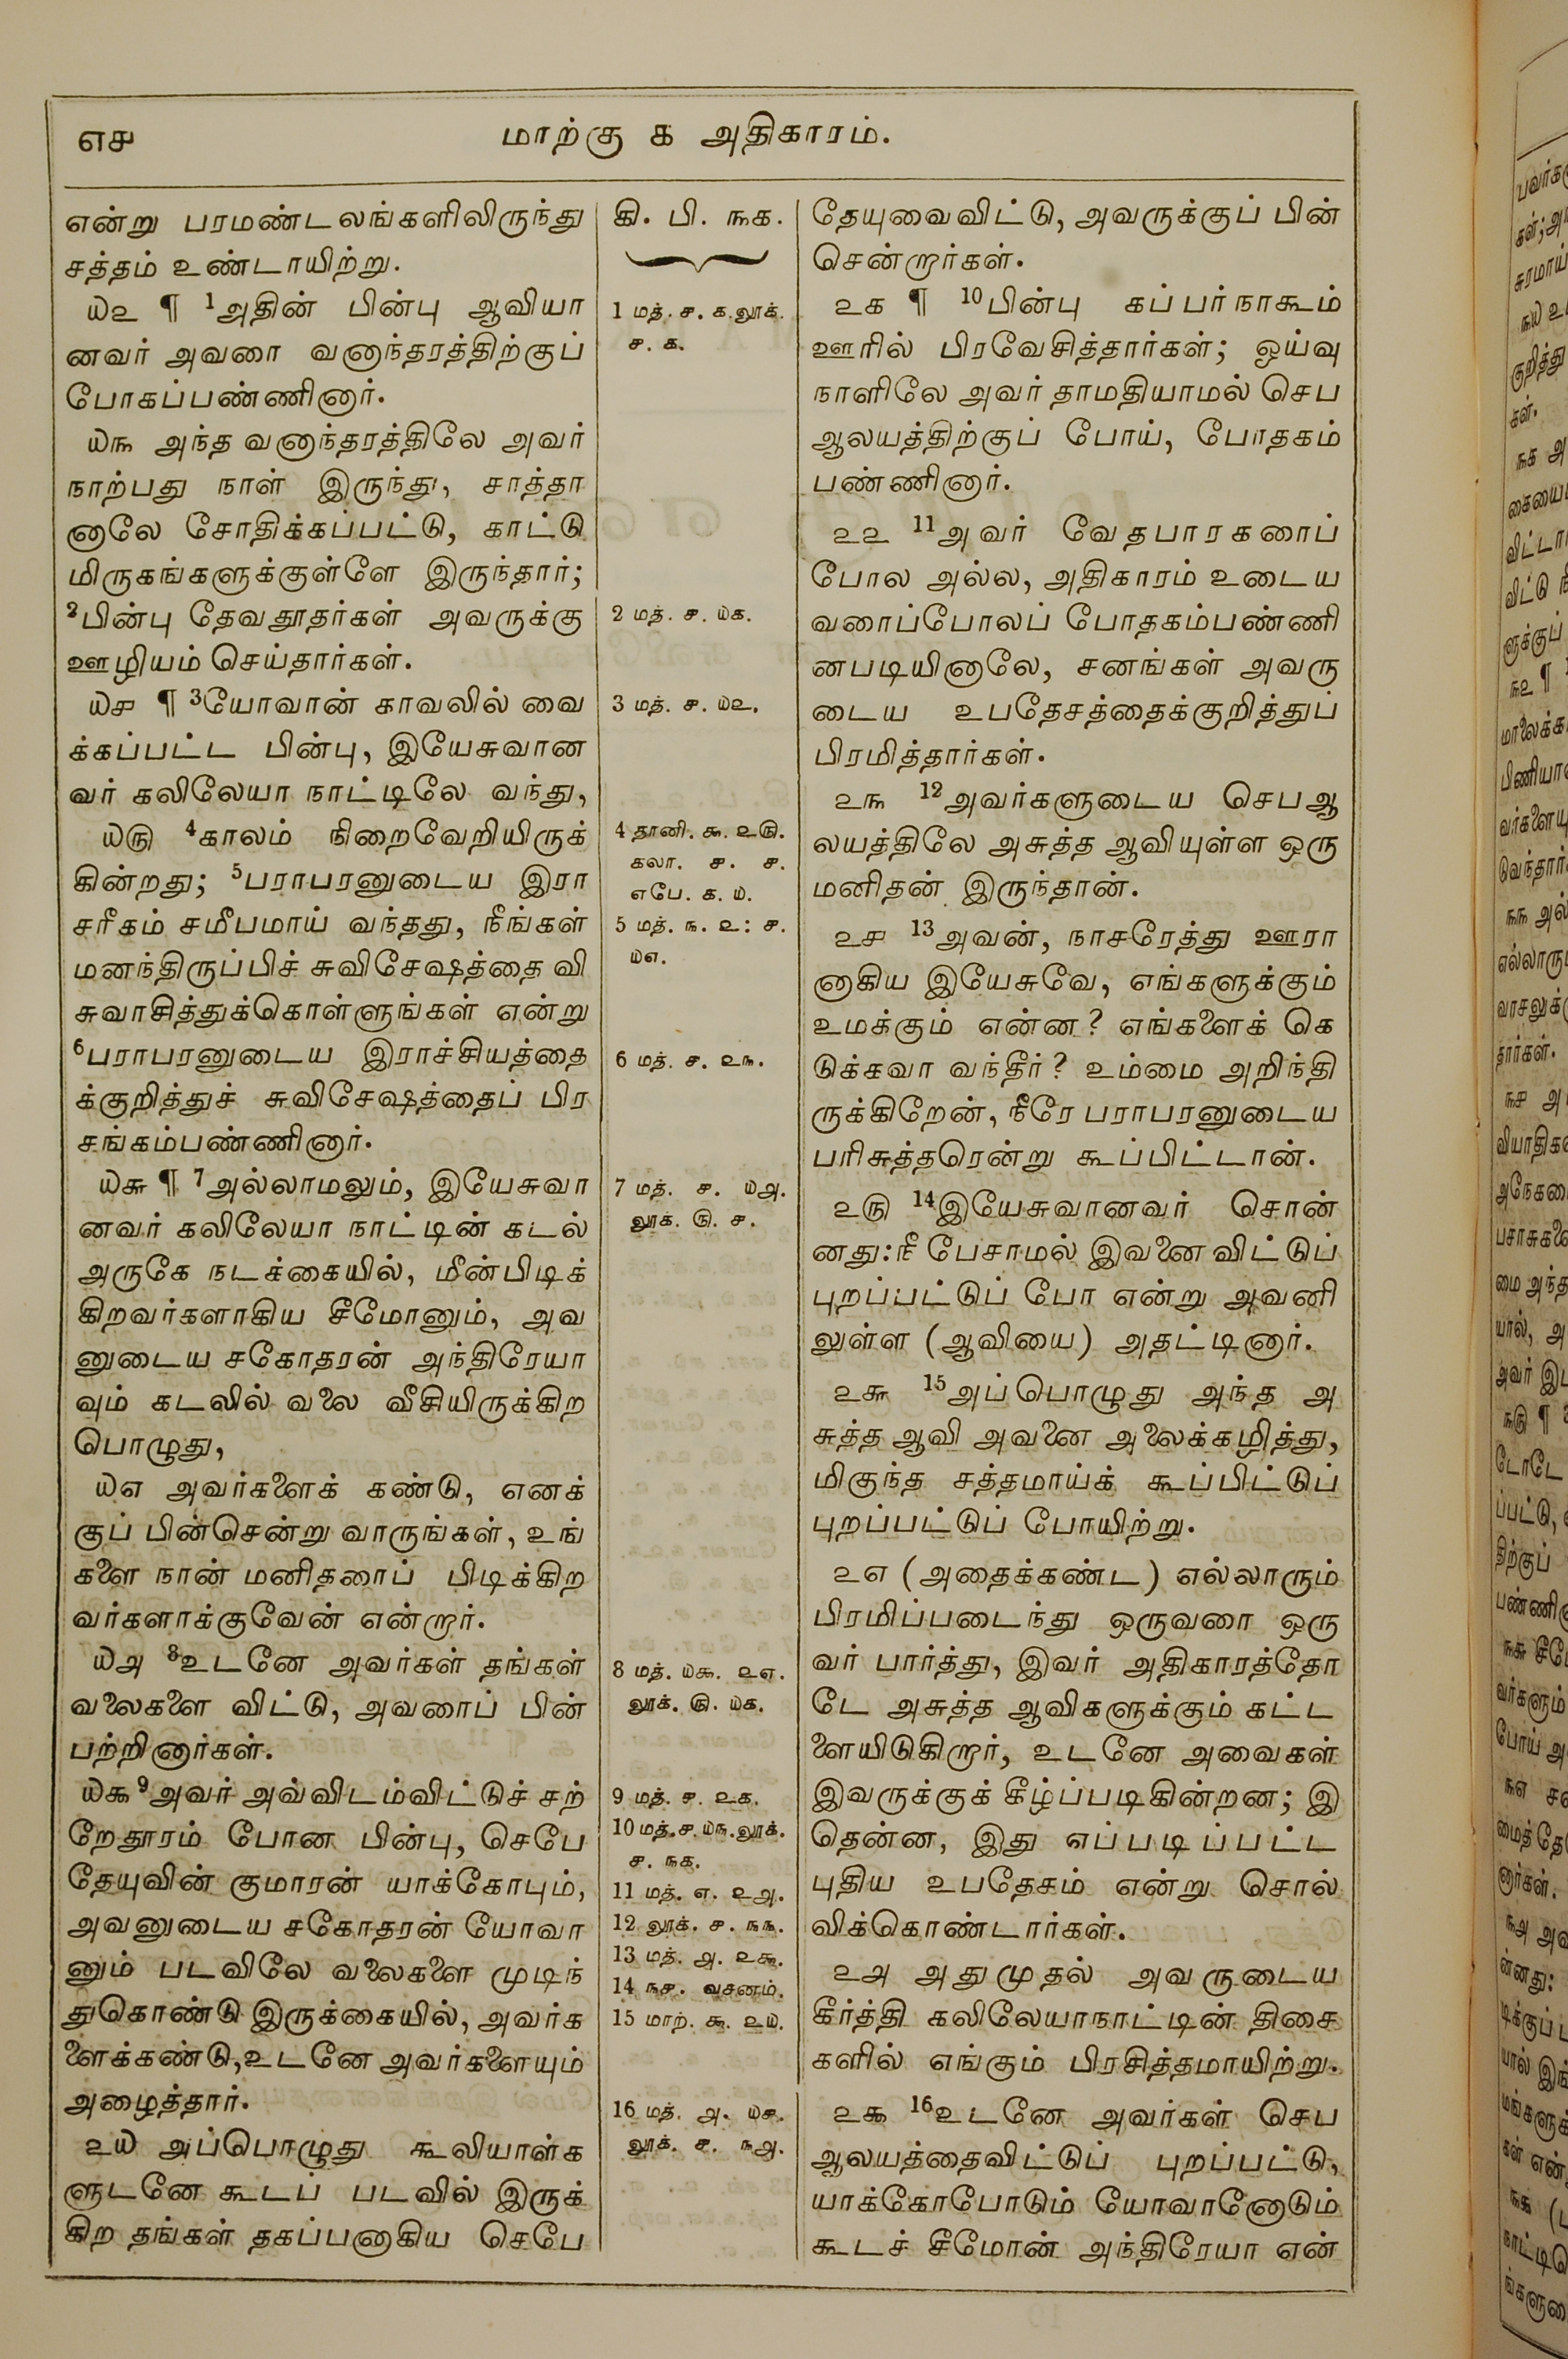 எ௪ மாற்கு ௧ அதிகாரம்.
என்று பரமண்டலங்களிலிருந்து
சத்தம் உண்டாயிற்று.
௰௨ ¶ 1அதின் பின்பு ஆவியா
னவர் அவரை வனாந்தரத்திற்குப்
போகப்பண்ணினார்.
௰௩ அந்த வனாந்தரத்திலே அவர்
நாற்பது நாள் இருந்து, சாத்தா
னாலே சோதிக்கப்பட்டு, காட்டு
மிருகங்களுக்குள்ளே இருந்தார்;
2பின்பு தேவதூதர்கள் அவருக்கு
ஊழியம் செய்தார்கள்.
௰௪ ¶ 3யோவான் காவலில் வை
க்கப்பட்ட பின்பு, இயேசுவான
வர் கலிலேயா நாட்டிலே வந்து,
௰௫ 4காலம் நிறைவேறியிருக்
கின்றது; 5பராபரனுடைய இரா
சரீகம் சமீபமாய் வந்தது, நீங்கள்
மனந்திருப்பிச் சுவிசேஷத்தை வி
சுவாசித்துக்கொள்ளுங்கள் என்று
6பராபரனுடைய இராச்சியத்தை
க்குறித்துச் சுவிசேஷத்தைப் பிர
சங்கம்பண்ணினார்.
௰௬ ¶ 7அல்லாமலும், இயேசுவா
னவர் கலிலேயா நாட்டின் கடல்
அருகே நடக்கையில், மீன்பிடிக்
கிறவர்களாகிய சீமோனும், அவ
னுடைய சகோதரன் அந்திரேயா
வும் கடலில் வலை வீசியிருக்கிற
பொழுது,
௰௭ அவர்களைக் கண்டு, எனக்
குப் பின்சென்று வாருங்கள், உங்
களை நான் மனிதரைப் பிடிக்கிற
வர்களாக்குவேன் என்றார்.
௰௮ 8உடனே அவர்கள் தங்கள்
வலைகளை விட்டு, அவரைப் பின்
பற்றினார்கள்.
௰௯ 9அவர் அவ்விடம்விட்டுச் சற்
றேதூரம் போன பின்பு, செபே
தேயுவின் குமாரன் யாக்கோபும்,
அவனுடைய சகோதரன் யோவா
னும் படவிலே வலைகளை முடிந்
துகொண்டு இருக்கையில், அவர்க
ளைக்கண்டு,உடனே அவர்களையும்
அழைத்தார்.
௨௰ அப்பொழுது கூலியாள்க
ளுடனே கூடப் படவில் இருக்
கிற தங்கள் தகப்பனாகிய செபே
கி. பி. ௩௧.
1 மத். ௪. ௧.லூக்.
௪. ௧.
2 மத். ௪. ௰௧.
3 மத். ௪. ௰௨.
4 தானி. ௯. ௨௫.
கலா. ௪. ௪.
எபே. ௧. ௰.
5 மத். ௩. ௨: ௪.
௰௭.
6 மத். ௪. ௨௩.
7 மத். ௪. ௰௮.
லூக். ௫. ௪.
8 மத். ௰௯. ௨௭.
லூக். ௫. ௰௧.
9 மத். ௪. ௨௧.
10 மத்.௪.௰௩.லூக்.
௪. ௩௧.
11 மத். ௭. ௨௮.
12 லூக். ௪. ௩௩.
13 மத். ௮. ௨௯.
14 ௩௪. வசனம்.
15 மாற். ௯. ௨௰.
16 மத். ௮. ௰௪.
லூக். ௪. ௩௮.
தேயுவைவிட்டு, அவருக்குப் பின்
சென்றார்கள்.
௨௧ ¶ 10பின்பு கப்பர்நாகூம்
ஊரில் பிரவேசித்தார்கள்; ஓய்வு
நாளிலே அவர் தாமதியாமல் செப
ஆலயத்திற்குப் போய், போதகம்
பண்ணினார்.
௨௨ 11அவர் வேதபாரகரைப்
போல அல்ல, அதிகாரம் உடைய
வரைப்போலப் போதகம்பண்ணி
னபடியினாலே, சனங்கள் அவரு
டைய உபதேசத்தைக்குறித்துப்
பிரமித்தார்கள்.
௨௩ 12அவர்களுடைய செபஆ
லயத்திலே அசுத்த ஆவியுள்ள ஒரு
மனிதன் இருந்தான்.
௨௪ 13அவன், நாசரேத்து ஊரா
னாகிய இயேசுவே, எங்களுக்கும்
உமக்கும் என்ன? எங்களைக் கெ
டுக்கவா வந்தீர்? உம்மை அறிந்தி
ருக்கிறேன், நீரே பராபரனுடைய
பரிசுத்தரென்று கூப்பிட்டான்.
௨௫ 14இயேசுவானவர் சொன்
னது:நீ பேசாமல் இவனை விட்டுப்
புறப்பட்டுப் போ என்று அவனி
லுள்ள (ஆவியை) அதட்டினார்.
௨௬ 15அப்பொழுது அந்த அ
சுத்த ஆவி அவனை அலைக்கழித்து,
மிகுந்த சத்தமாய்க் கூப்பிட்டுப்
புறப்பட்டுப் போயிற்று.
௨௭ (அதைக்கண்ட) எல்லாரும்
பிரமிப்படைந்து ஒருவரை ஒரு
வர் பார்த்து, இவர் அதிகாரத்தோ
டே அசுத்த ஆவிகளுக்கும் கட்ட
ளையிடுகிறார், உடனே அவைகள்
இவருக்குக் கீழ்ப்படிகின்றன; இ
தென்ன, இது எப்படிப்பட்ட
புதிய உபதேசம் என்று சொல்
லிக்கொண்டார்கள்.
௨௮ அதுமுதல் அவருடைய
கீர்த்தி கலிலேயாநாட்டின் திசை
களில் எங்கும் பிரசித்தமாயிற்று.
௨௯ 16உடனே அவர்கள் செப
ஆலயத்தைவிட்டுப் புறப்பட்டு,
யாக்கோபோடும் யோவானோடும்
கூடச் சீமோன் அந்திரேயா என்